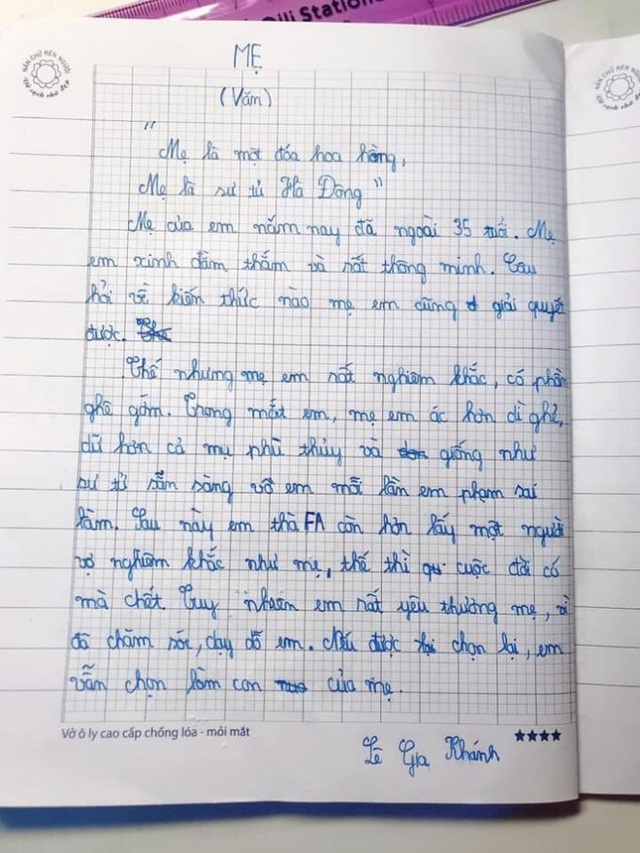 Olli Station
NẮN CHỮ RÈN NGƯỜI
MẸ
(Văn)
"
Mẹ là một đóa hoa hồng,
Mẹ là sư tử Hà Đông"
Mẹ của em năm nay đã ngoài 35 tuổi. Mẹ
em xinh đằm thắm và rất thông minh. Câu
hỏi về kiến thức nào mẹ em cũng giải quyết
được.
Thế nhưng mẹ em rất nghiêm khắc, có phần
ghê gớm. Trong mắt em, mẹ em ác hơn dì ghẻ,
dữ hơn cả mụ phù thủy và giống như
sư tử sẵn sàng vồ em mỗi lần em phạm sai
lầm. Sau này em thà FA còn hơn lấy một người
vợ nghiêm khắc như mẹ, thế thì cuộc đời có
mà chết. Tuy nhiên em rất yêu thương mẹ, vì
đã chăm sóc, dạy dỗ em. Nếu được chọn lại, em
vẫn chọn làm con của mẹ.
Vở ô ly cao cấp chống lóa - mỏi mắt
★★★★
Lê Gia Khánh